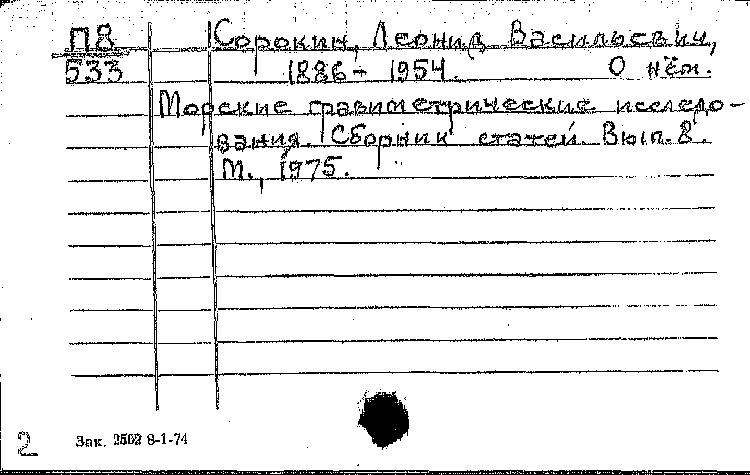 П8
533
Сорокин, Леонид Васильевич,
1886 - 1954. О нём.
Морские гравиметрические исследо-
вания. Сборник статей. Вып. 8.
М., 1975.
2
Зак. 2502 8-1-74